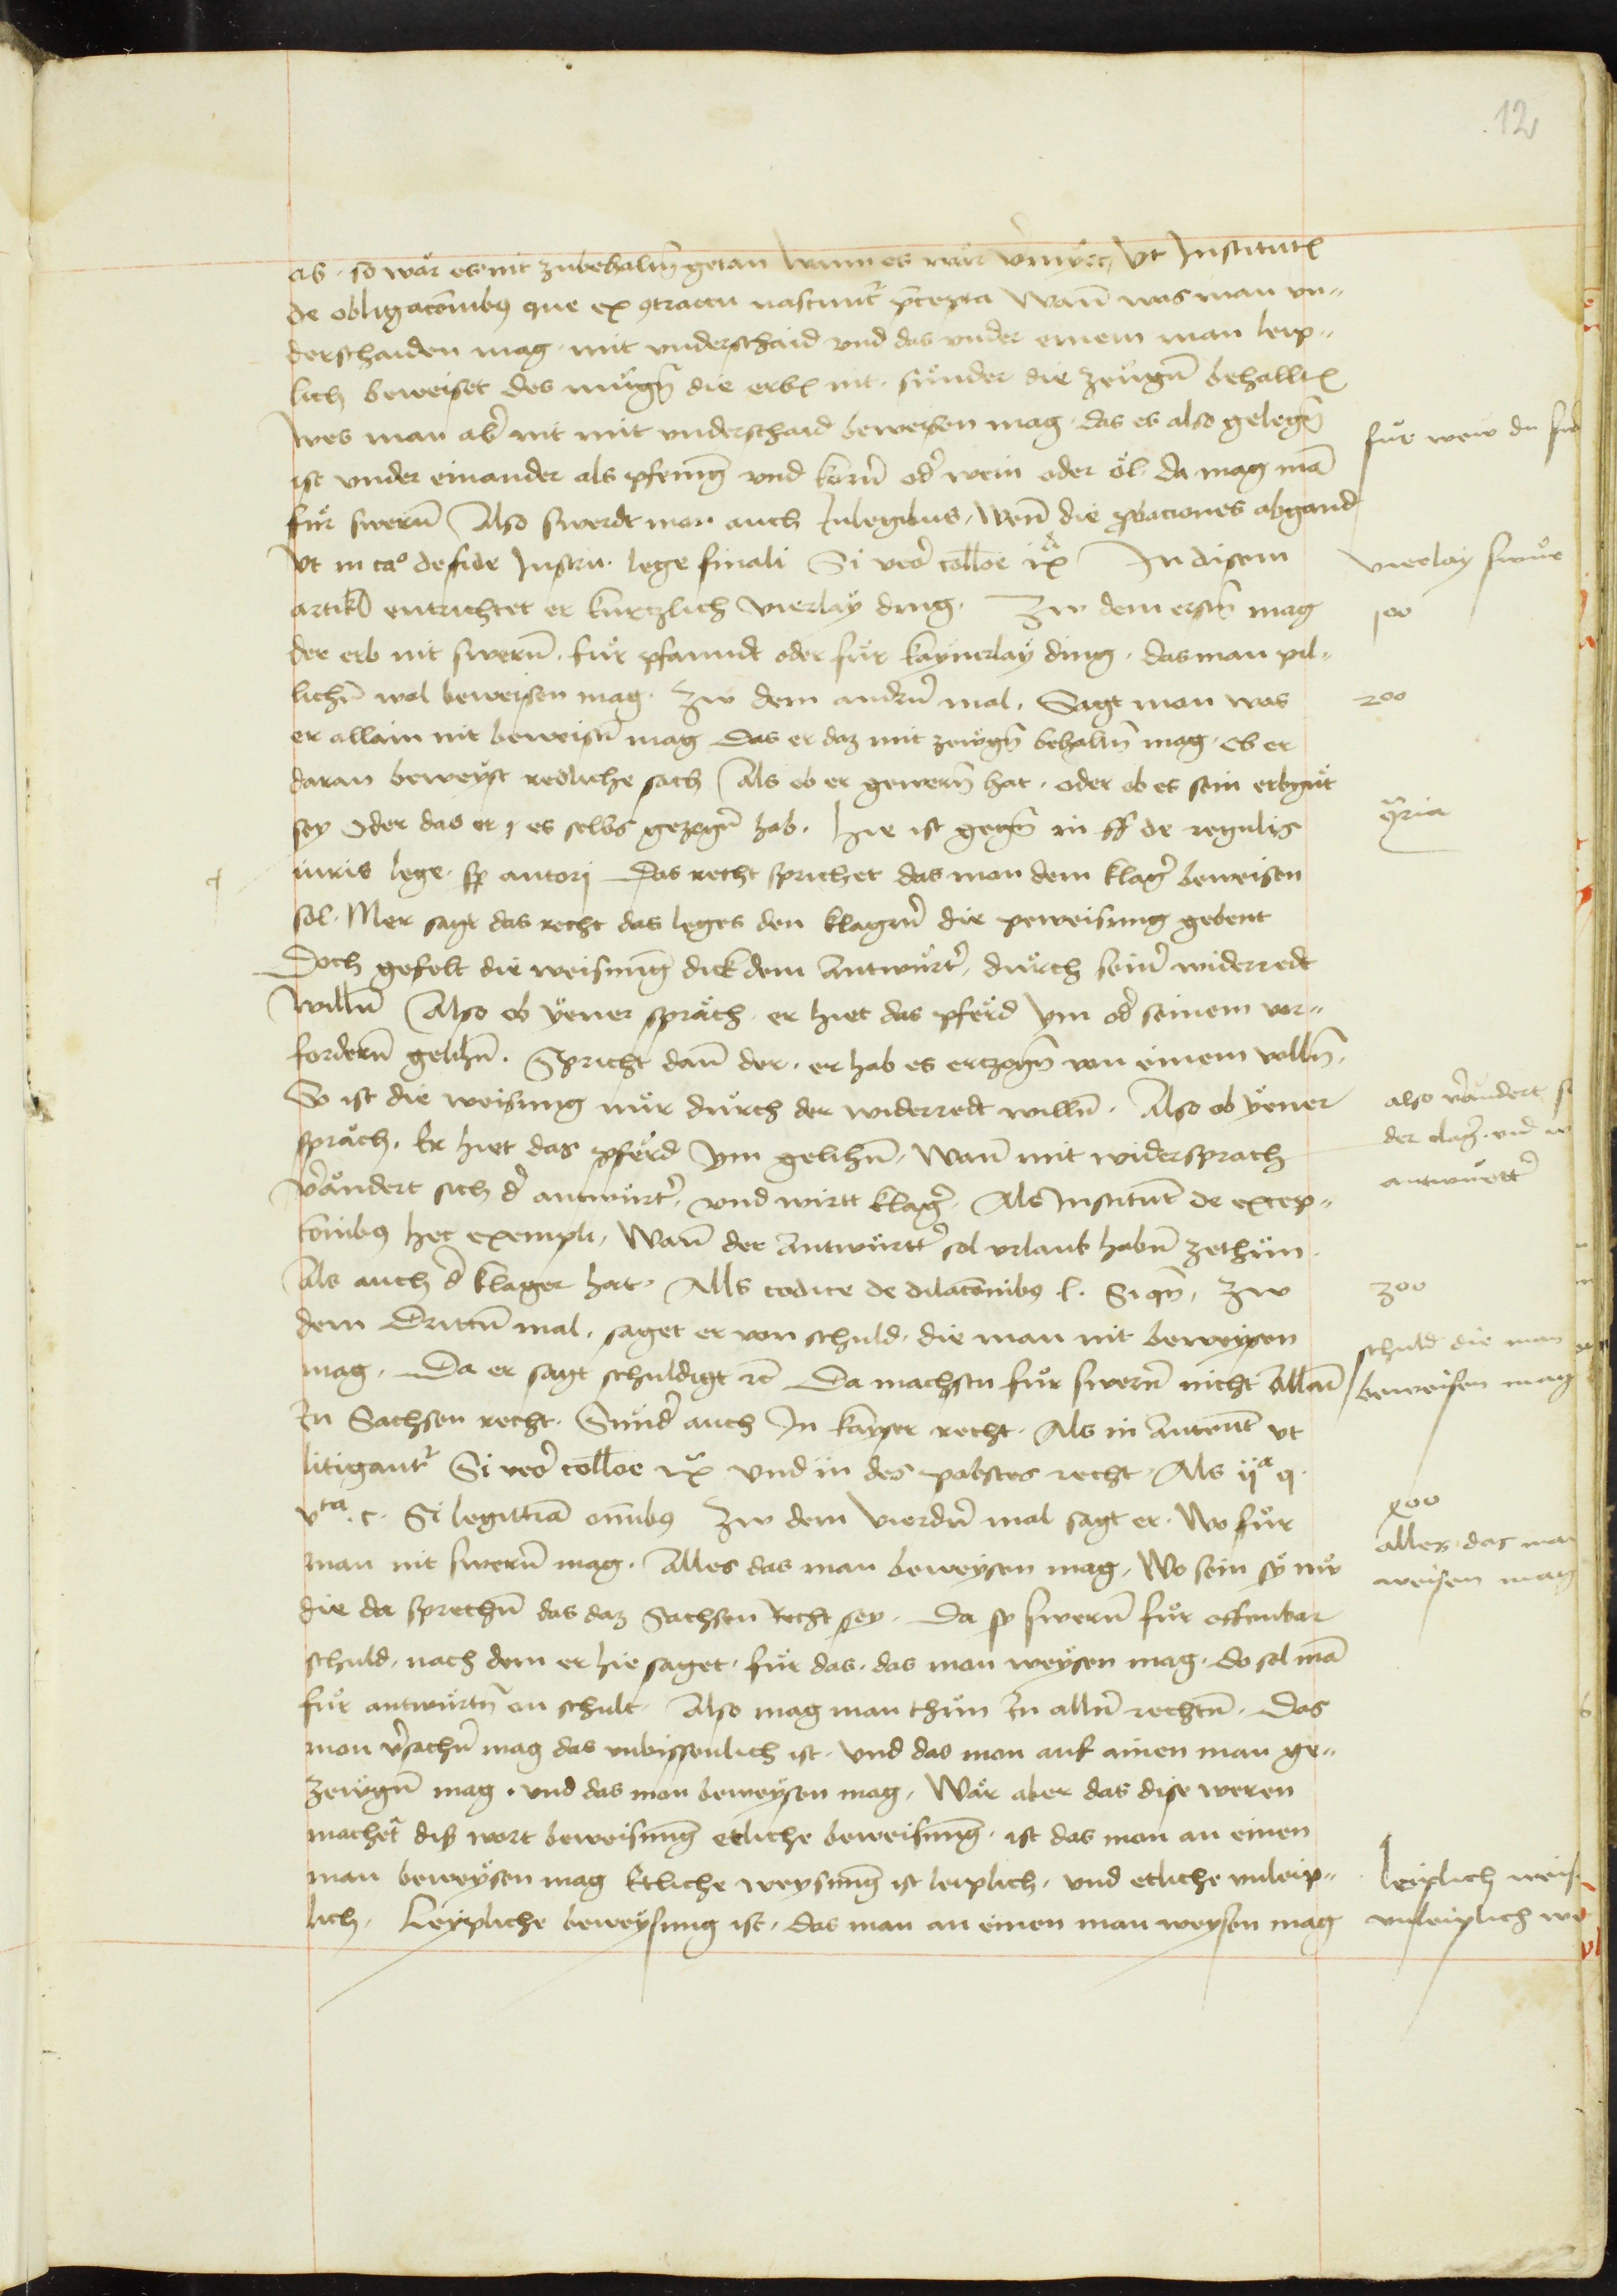 12
ab. so wår es nit zubehaltn̄ getan Wann es wår v̄myẍt, vt Institut
de obligac̄onibꝰ que ex ꝯtractu nascunt̄ p̄cepta Wan̄ was man vn„
derschaiden mag. mit vnderschaid vnd das vnder einem man leip„
lich beweiset des můgn̄ die erbn̄ nit. sůnder die zeůgn̄ behalltn̄
wes man ab̄ nit mit vnderschaid beweisen mag. das es also gelegn̄
ist vnder einander als pfening vnd korn̄ od̄ wein oder öl. da mag mā
fůr swern̄ Also swerdt man auch In legibus, Wen̄ die ꝓbaciones abgand
Vt in ca⁰ de fide Instru. lege finali Si veō colloē ix In disem
artikl entrichtet er kurtzlich vierlaÿ ding. Zw dem erstn̄ mag
der erb nit swern̄. fůr pfanndt oder fůr kaynerlaÿ ding. das man pil„
lichn̄ wol beweisen mag. Zw dem andrn̄ mal. Sagt man was
er allain nit beweisn̄ mag das er daz mit zewgn̄ behaltn̄ mag. ob er
daran beweÿst redliche sach Als ob er gewern̄ hat. oder ob es sein erbgůt
sey Oder das er es selbs gezogn̄ hab. hie ist gegn̄ in ff de regulis
iuris lege. sp̄ autorj Das recht sprichet das man dem klaḡ beweisen
sol. Mer sagt das recht das leges den klagern̄ die peweisung gebent
Doch gefelt die weisung dick dem Antwůrt̄, důrch sein̄ widerredt
willn̄ Also ob ÿener språch. er hiet das pferd ym od̄ seinem vor„
fordern̄ gelihn̄. Spricht dan̄ der. er hab es ertzogn̄ von einem volln̄.
So ist die weisung nůr důrch der widerredt willn̄. Also ob ÿener
språch. Er hiet das pferd ym gelihn̄, Wan̄ mit widersprach
v̄åndert sich d̄ antwůrt̄, vnd wirtt klaḡ. Als Institut̄ de excep„
c̄onibꝰ hec exempli, Wan̄ der Antwůrtt̄ sol vrlaub habn̄ zethůn.
Als auch d̄ klager hat. Alls codice de dilac̄onibꝰ l. Si qn̄, Zw
dem Drittn̄ mal. saget er von schuld. die man nit beweysen
mag. Da er sagt schuldigt ꝛc̄ Da machstu fůr swern̄ nicht Allain
In Sachsen recht. Sund̄ auch In kayser recht. Als in Autent̄ vt
litigant̄ Si veō colloē ix und in des pabstes recht. Als ijᵃ q.
vᵗᵃ. c. Si legittimā om̄ibꝰ Zw dem Vierdn̄ mal sagt er. Wo fůr
man nit swern̄ mag. Alles das man beweysen mag, Wo sein sÿ nw
die da sprechn̄ das daz Sachsen Recht sey. Da sy swern̄ fůr offenbar
schuld. nach dem er hie saget. fůr das. das man weÿsen mag. do sol mā
fůr antwůrtn̄ on schult. Also mag man thůn In alln̄ rechtn̄. Das
man v̄sachn̄ mag das vnbissenlich ist. vnd das man auf ainen man ge„
zewgn̄ mag. vnd das man beweÿsen mag, Wår aber das dise weren
machet̄ diß wort beweisung etliche beweisung. ist das man an einen
man beweÿsen mag Etliche weysung ist leiplich. vnd etliche vnleip„
lich, Leÿpliche beweÿsung ist, das man an einen man weysen mag
fůr wew du
vierlaÿ swůr
1⁰⁰
2⁰⁰
ꝯ̄ria
also v̄åndert
der claḡ. vnd
antwůrtt̄
3⁰⁰
schuld die man
beweisen mag
alles das man
weisen mag
leiplich weis
vnleiplich we